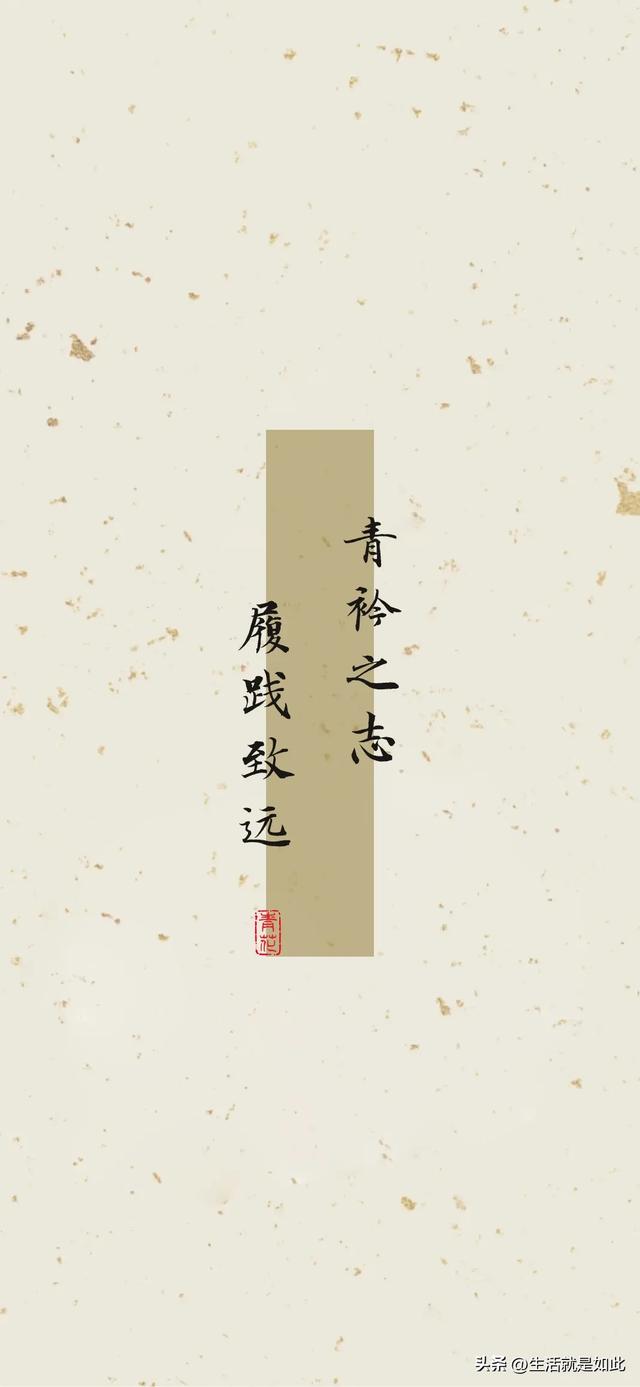 青衿之志
履践致远
青花
头条 @生活就是如此